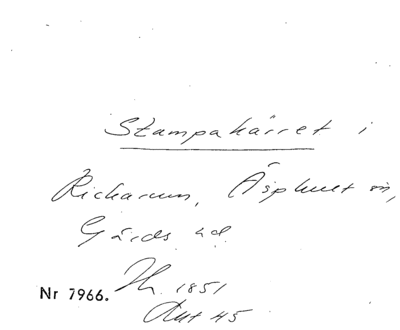 Stampakärret i
Rickarum, Äsphult sn,
Gärds hd.
Nr 7966. Th. 1851
Aut 45